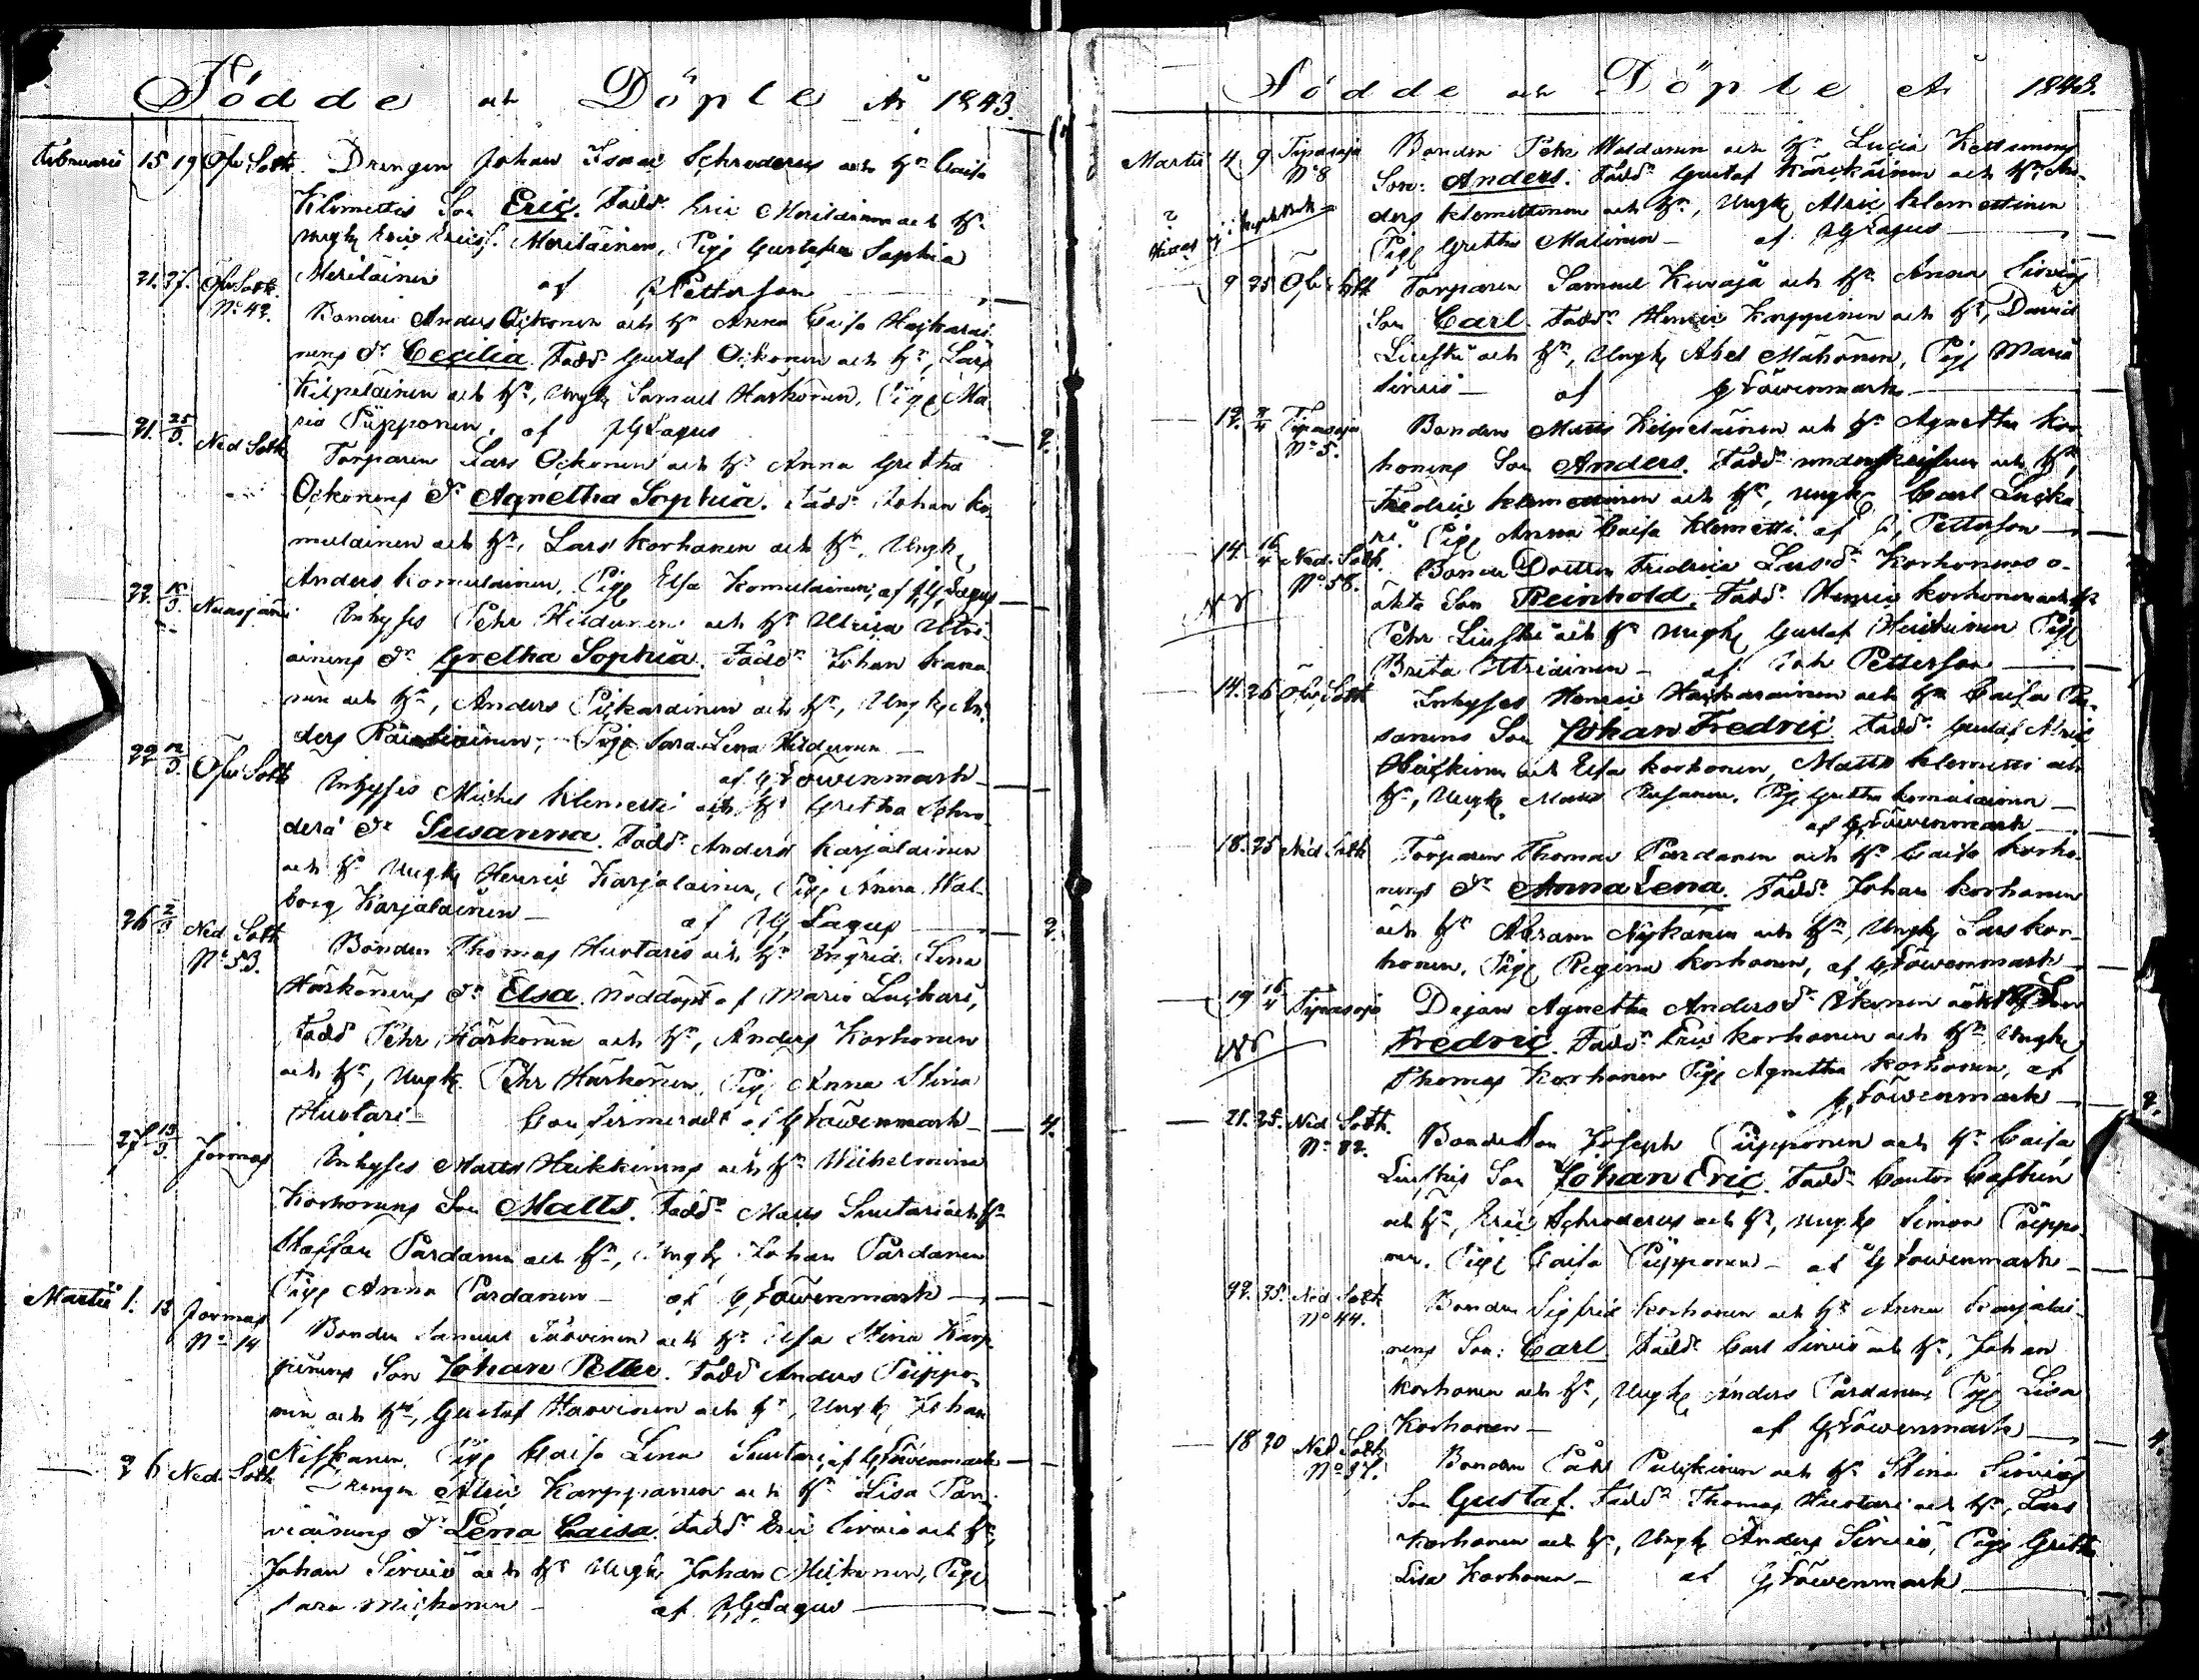 Födde och Döpte År 1843.
Februarii 15 19 Öfv. Sotk. Drengen Johan Isaac Schroderus och H:u Caisa
Klemettis Son Eric. Fadd: Eric Meriläinen och H:u
Ungk Eric Erics. Meriläinen, Pig Gustafva Sophia
Meriläinen af J Petterson
21. 27. Öfv Sotk. N:o 42. Bonden Anders Ockonen och H:u Anna Caisa Haikarai-
nens D:r Cecilia. Fadd: Gustaf Ockonen och H:u, Lars
Kilpeläinen och H:u, Ungk Samuel Härkönen, Pig Ma-
ria Piipponen. af J G Lagus 2.
21. 25/3. Ned Sotk Torparen Lars Ockonen och H:u Anna Gretha
Ockonens D:r Agnetha Sophia. Fadd: Johan Ko-
mulainen och H:u, Lars Korhonen och H:u, Ungk
Anders Komulainen, Pig Elsa Komulainen, af J G Lagus
22. /3. Nuasjärvi Inhyses Pehr Hildunen och H:u Ulrica
ainens D:r Gretha Sophia. Fadd:r Johan
nen och H:u, Anders Pickarainen och H:u, Ungk An-
ders Räisäinen, Pig Sara Lena Hildunen
af G Löwenmark
22 12/3. Öfv Sotk Inhyses Michel Klemetti och H:u Gretha Schro-
dera D:r Susanna. Fadd:r Anders Karjalainen
och H:u Ungk Henric Karjalainen, Pig Anna Wal-
borg Karjalainen af J G Lagus 2
26 2/3 Ned Sotk N:o 53. Bonden Thomas Huotaris och H:u Ingrid Lena
Härkönens D:r Elsa. Nöddöpt af Maria Luckari,
Fadd Pehr Härkönen och H:u, Anders Korhonen
och H:u, Ungk. Pehr Härkönen, Pig Anna Stina
Huotari Confirmeradt af G Löwenmark 4.
27 13/3. Jormas Inhyses Matts Heikkinens och H:u Wilhelmina
Korhonens Son Matts. Fadd:r Matts Suutari och H:u
Staffan Pardanen och H:u, Ungk Johan Pardanen
Pig Anna Pardanen af G Löwenmark
Martii 1. 13 Jormas N:o 14 Bonden Samuel och H:u Elsa Stina Karp-
pinens Son Johan Petter. Fadd Anders Piippo-
nen och H:u, Gustaf Harvinen och H:u, Ungk Johan
Niskanen Pig Caisa Lena Suutari, af G Löwenmark
2 6 Ned. Sotk Drengen Alric Karppanen och H:u Lisa Par-
viainens D:r Lena Caisa. Fadd:r Eric Sirviö och H:u,
Johan Sirviö och H:u Ungk Johan Mickonen, Pig
Sara Mickonen af J G Lagus
Födde och Döpte År 1843.
Martii 4 9 Tipasoja N:o 8 Bonden Pehr Moldanen och H:u Lucia Kettunens
Son: Anders. Fadd:r Gustaf Kärckäinen och H:u, An-
ders Klemettinen och H:u, Ungk Alric Klemettinen
Pig Gretha Malinen af J G Lagus
9 25 Öfv. Sotk Torparen Samuel Kuvaja och H:u Anna Sirviös
Son Carl. Fadd:r Henric Karppinen och H:u, David
Liuski och H:u, Ungk Abel Mähönen, Pig Maria
Sirviö af G Löwenmark
12. /4 Tipasoja N:o 5. Bonden Matts Kilpeläinen och H:u Agnetha Kor-
honens Son Anders. Fadd:r och H:u,
Fredric Klemettinen och H:u, Ungk Carl Lucka-
ri, Pig Anna Caisa Klemetti af J. Petterson
14. 16/4 Ned. Sotk. N:o 58. Bonde Dottren Fredrica Larsd:r Korhonens o-
äkta Son Reinhold. Fadd:r Henric Korhonen och H:u
Pehr Liuski och H:u Ungk Gustaf Heickinen Pig
Brita Uttriainen af Joh Petterson
14. 26 Öfv. Sotk Inhyses Henric Haikarainen och H:u Caisa
sanens Son Johan Fredric. Fadd:r Gustaf Alric
Heickinen och Elsa Korhonen, Matts Klemetti och
H:u, Ungk Matts Pusanen, Pig Gretha Komulainen
af G Löwenmark
18. 25 Ned Sotk Torparen Thomas Pardanen och H:u Caisa Korho-
nens D:r Anna Lena. Fadd:r Johan Korhonen
och H:u Abram Nykänen och H:u, Ungk Lars Kor-
honen, Pig Regina Korhonen, af G Löwenmark
19 16/4 Tipasoja Dejan Agnetha Andersd:r
Fredric. Fadd:r Eric Korhonen och H:u Ungk
Thomas Korhonen Pig Agnetha Korhonen, af
G Löwenmark 2.
21. 25. Ned Sotk. N:o 82. Bonde Son Joseph Piipponen och H:u Caisa
Liuskis Son Johan Eric. Fadd:r Cantor Castrén
och H:u, Eric Schroderus och H:u, Ungk Simon Piippo-
nen, Pig Caisa Piipponen af G Löwenmark
22. 25. Ned Sotk N:o 44. Bonden Sigfrid Korhonen och H:u Anna Karjalai-
nens Son: Carl Fadd:r Carl Sirviö och H:u, Johan
Korhonen och H:u, Ungk Anders Pardanen, Pig Lisa
Korhonen af G Löwenmark 4.
18 20 Ned Sotk N:o 37. Bonden Påhl Pulckinen och H:u Stina Sirviös
Son Gustaf. Fadd:r Thomas Huotari och H:u, Lars
Korhonen och H:u, Ungk Anders Sirviö, Pig Gretha
Lisa Korhonen af G Löwenmark